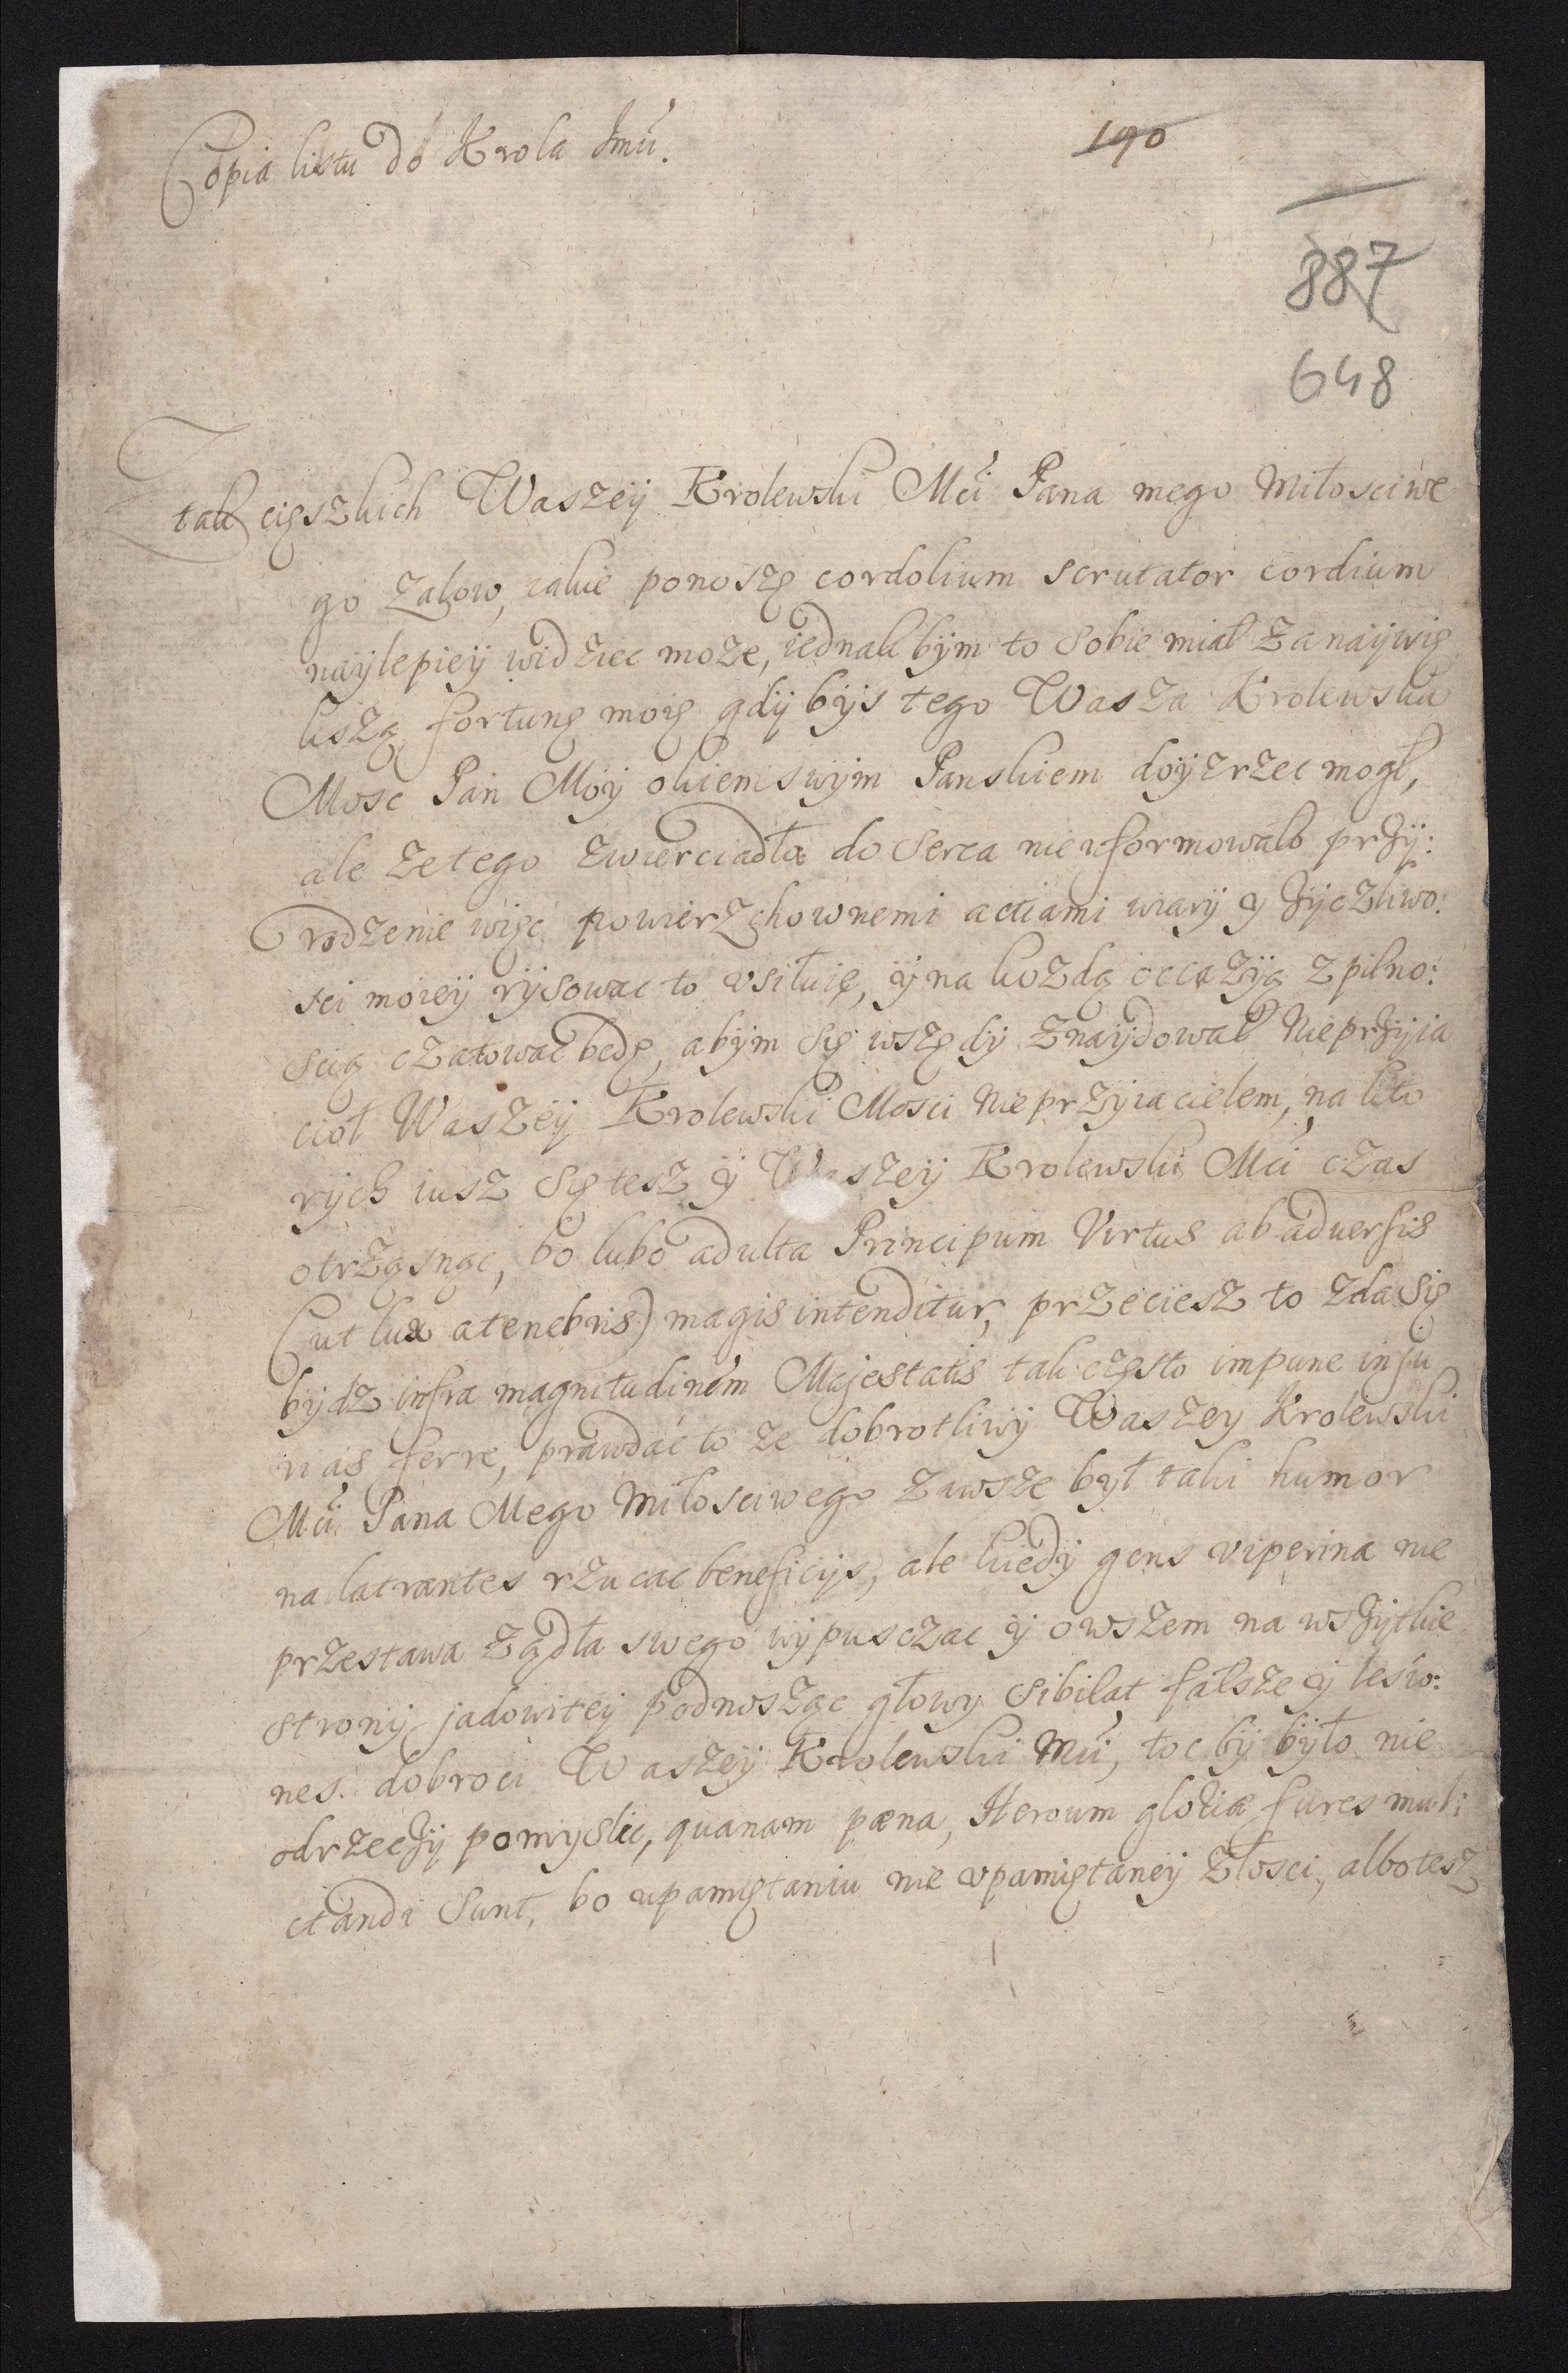 Copia listu do Krola Jmći.
190
887
648
Z tak cięszkich Waszeÿ Krolewski Mći Pana mego Miłosciwe
go zalow, iakie ponoszę cordolium scrutator cordium
naÿlepieÿ widziec moze, iednak bÿm to sobie miał za naÿwię
kszą fortunę moię gdÿ bÿs tego Wasza Krolewska
Mosc Pan Moÿ okiem swÿm Panskiem doÿzrzec mogł,
ale ze tego zwierciadła do serca nie uformowało przÿ:
rodzenie więc powierzchownemi actiami wiarÿ y zÿczliwo:
sci moieÿ rÿsowac to vsiłuię, ÿ na kozdą occazÿą z pilno:
scią czatowac będę, abÿm się wszędÿ znaÿdował Nieprzÿia
cioł Waszeÿ Krolewski Mosci Nieprzÿiacielem, na kto
rÿch iusz się tesz ÿ Waszeÿ Krolewski Mći czas
otrząsnąc, bo lubo adulta Principum Virtus ab adversis
(ut lux a tenebris) magis intenditur, przeciesz to zda się
bÿdz infra magnitudinem Majestatis tak często impune inju
rias ferre, prawdac to ze dobrotliwÿ Waszey Krolewski
Mći Pana Mego Miłosciwego zawsze był taki humor
na latrantes rzucac beneficijs, ale kiedÿ gens viperina nie
przestawa ządła swego wÿpusczac ÿ owszem na wszÿtkie
stronÿ jadowiteÿ podnosząc głowy sibilat fałsze ÿ leśw:
nes. dobroci Waszeÿ Krolewski Mći, toc bÿ bÿło nie
odrzeczÿ pomyslic, quanam pæna, Heroum gloriæ fures mul:
ctandi sunt, bo upamiętaniu nie vpamiętaneÿ złosci, albo tesz